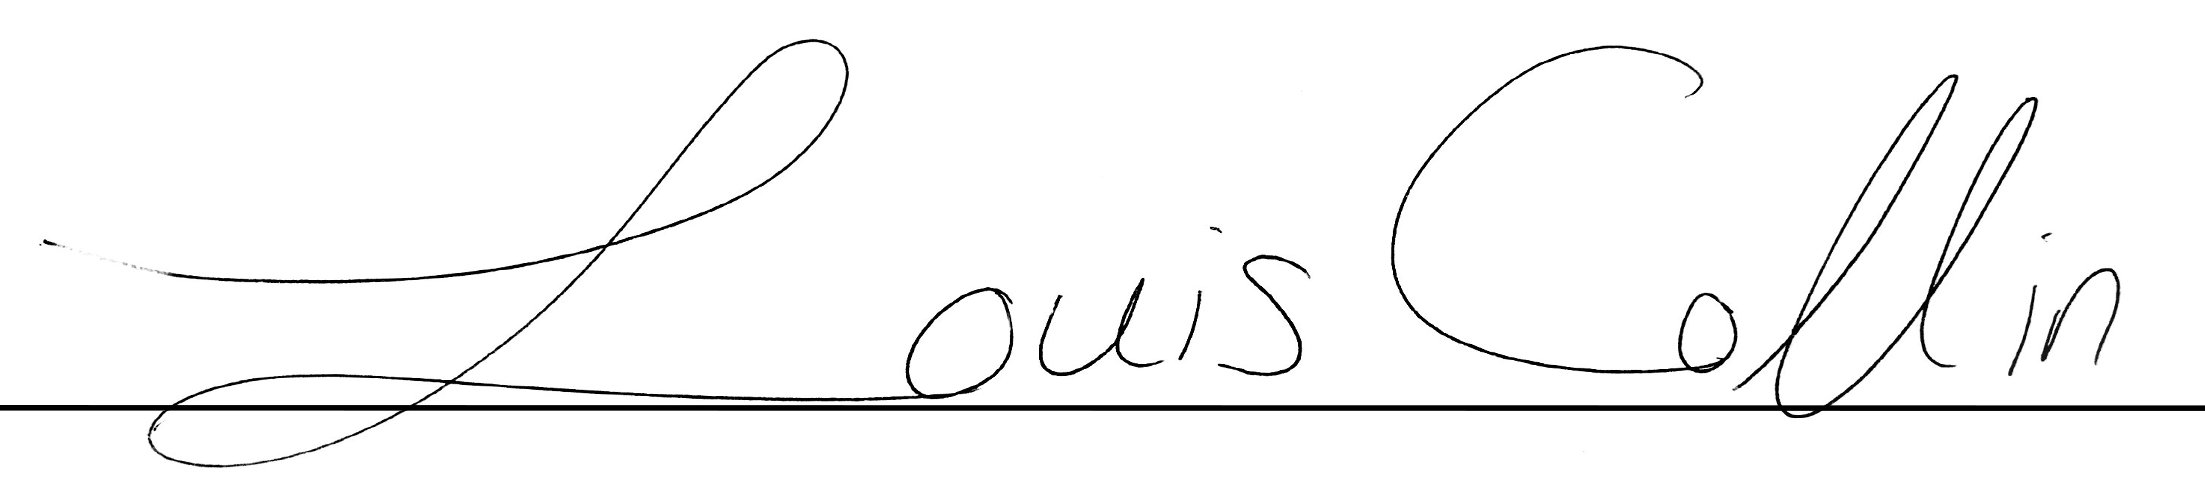 Louis Collin